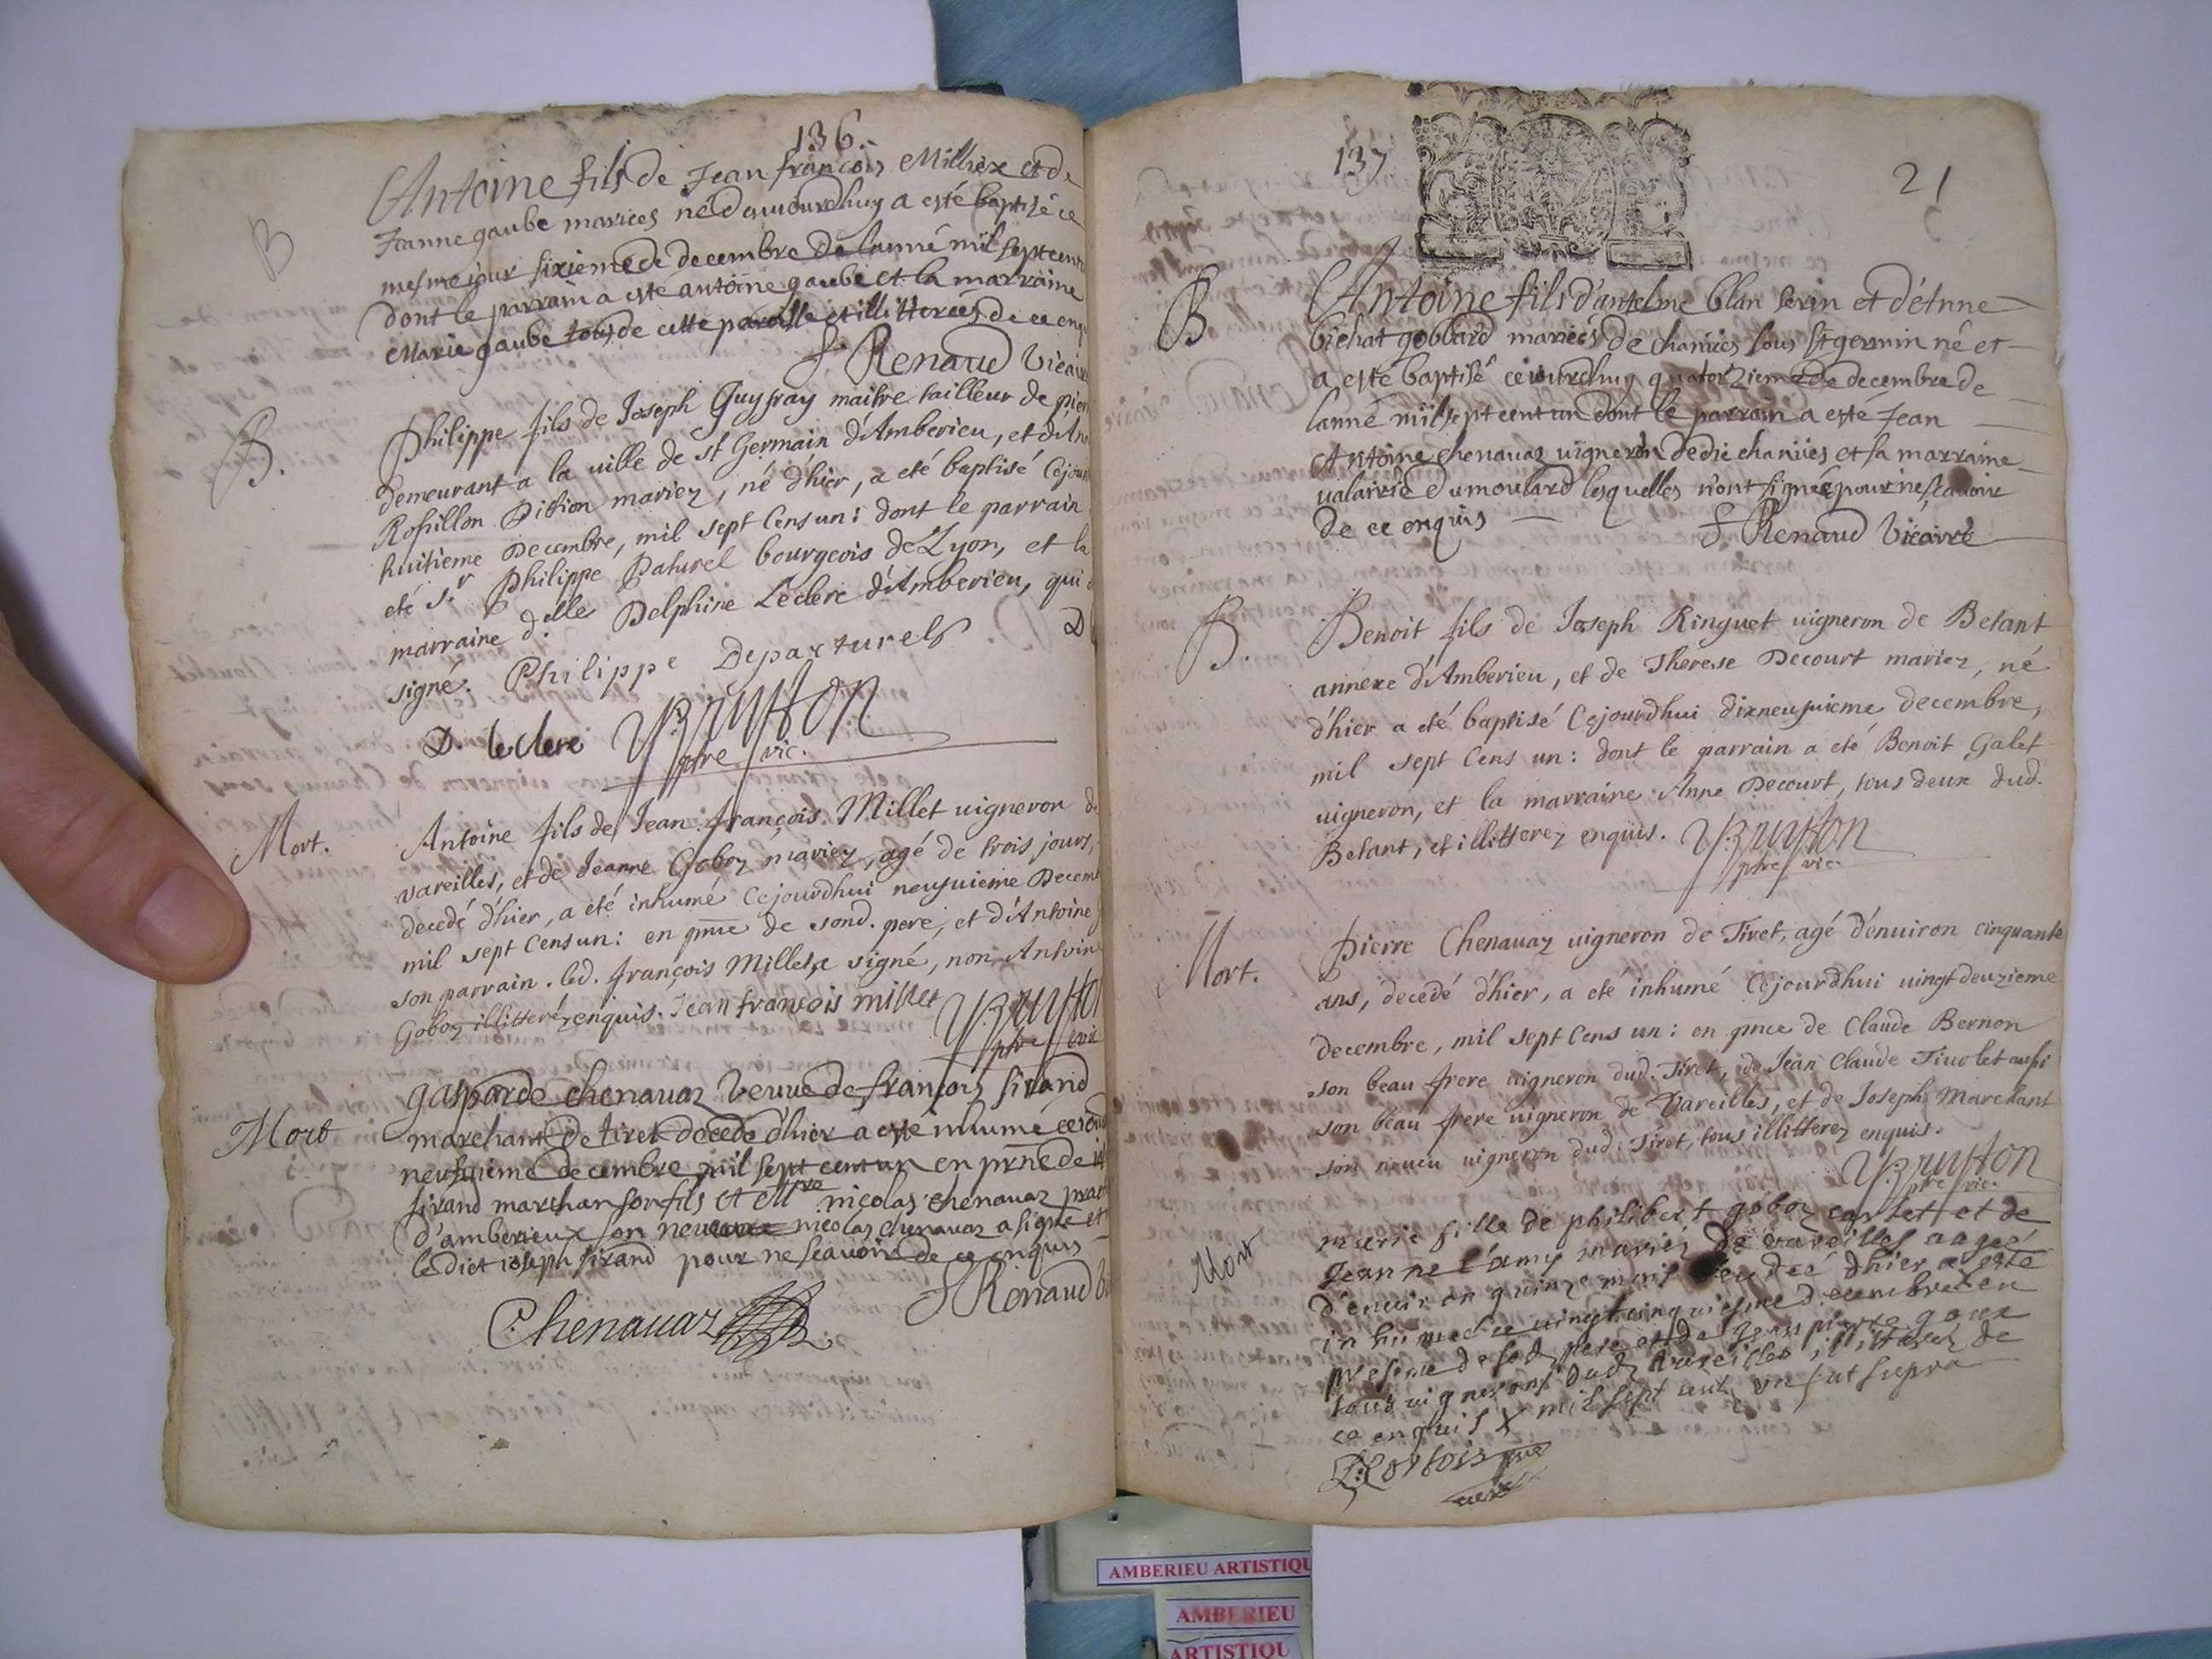 136.
B
Antoine fils de Jean françois Millier et de
Jeanne gaube mariees né daujourdhuy a esté baptisé ce
mesme jour sixieme de decembre de lanné mil sept cent
dont le parrain a este antoine gaube et la marraine
Marie gaube tous de cette paroisse et illitterées de ce enq
f. Renaud Vicaire
B.
Philippe fils de Joseph Guyfray maitre tailleur de pier
demeurant a la ville de st Germain d'Amberieu, et d'An
Rossillon Dition mariez, né d'hier, a eté baptisé Cejour
huitième Decembre, mil sept Cens un: dont le parrain
eté Sr. Philippe Paturel bourgeois de Lyon, et la
marraine d.elle Delphine Leclerc d'Amberieu, qui
signé. Philippe Depasturel D
D. leclerc Brutton
ptre vic.
Mort.
Antoine fils de Jean françois Millet uigneron de
vareilles, et de Jeanne Goboz mariez, agé de trois jours,
decedé d'hier, a eté inhumé Cejourdhui neufuieme Decem
mil sept Cens un: en pnce de sond. pere, et d'Antoine
son parrain. led. françois Millet a signé, non Antoin
Goboz illitteré enquis. Jean francois millet Brutto
ptre vic
Mort
gasparde chenauaz veuue de françois sirand
marchant de tiret decede d'hier a esté inhumé ce jourd
neufuieme decembre mil sept cent un en prnce de
sirand marchan son fils et Mtre nicolas chenauaz prat
d'amberieux son neueu nicolas chenauaz a signé et
le dict ioseph sirand pour ne scauoir de ce enquis
f Renaud Vi
Chenauaz
137
21
B
Antoine fils d'antelme blan serin et d'Anne
bichat gobbard mariees de chanües sous st germin né et
a esté baptisé ce iourdhuy quatorzieme de decembre de
lanné mil sept cent un dont le parrain a esté Jean
Antoine chenauaz uigneron dedit chanües et sa marraine
ualairie dumoulard lesquelles n'ont signée pour ne scauoir
de ce enquis f Renaud Vicaire
B.
Benoit fils de Joseph Ringuet uigneron de Betant
annexe d'Amberieu, et de Therese Decourt mariez, né
d'hier a eté baptisé Cejourdhui dixneufuieme decembre,
mil sept Cens un: dont le parrain a eté Benoit Galet
uigneron, et la marraine Anne Decourt, tous deux dud.
Betant, et illitterez enquis. Brutton
ptre vic.
Mort.
Pierre Chenauaz uigneron de Tiret, agé d'enuiron cinquante
ans, decedé d'hier, a eté inhumé Cejourdhui uingtdeuzieme
decembre, mil sept Cens un: en pnce de Claude Bernon
son beau frere uigneron dud. Tiret, de Jean Claude Tiuolet aussi
son beau frere uigneron de Vareilles, et de Joseph Marchant
son neueu uigneron dud. Tiret, tous illitterez enquis.
Brutton
ptre vic.
Mort
marie fille de philibert goboz carlet et de
Jeanne l'amy mariez de vareilles aagée
d'enuiron quinze mois decedeé dhier a esté
inhumeé ce vingtcinquiesme decembre en
presence de sod pere et de Jean pierre goux
tous uignerons dud vareilles illiterez de
ce enquis X mil sept cent un fut supra
Cortois ptre
vic.
AMBERIEU ARTISTIQU
AMBERIEU
ARTISTIQU